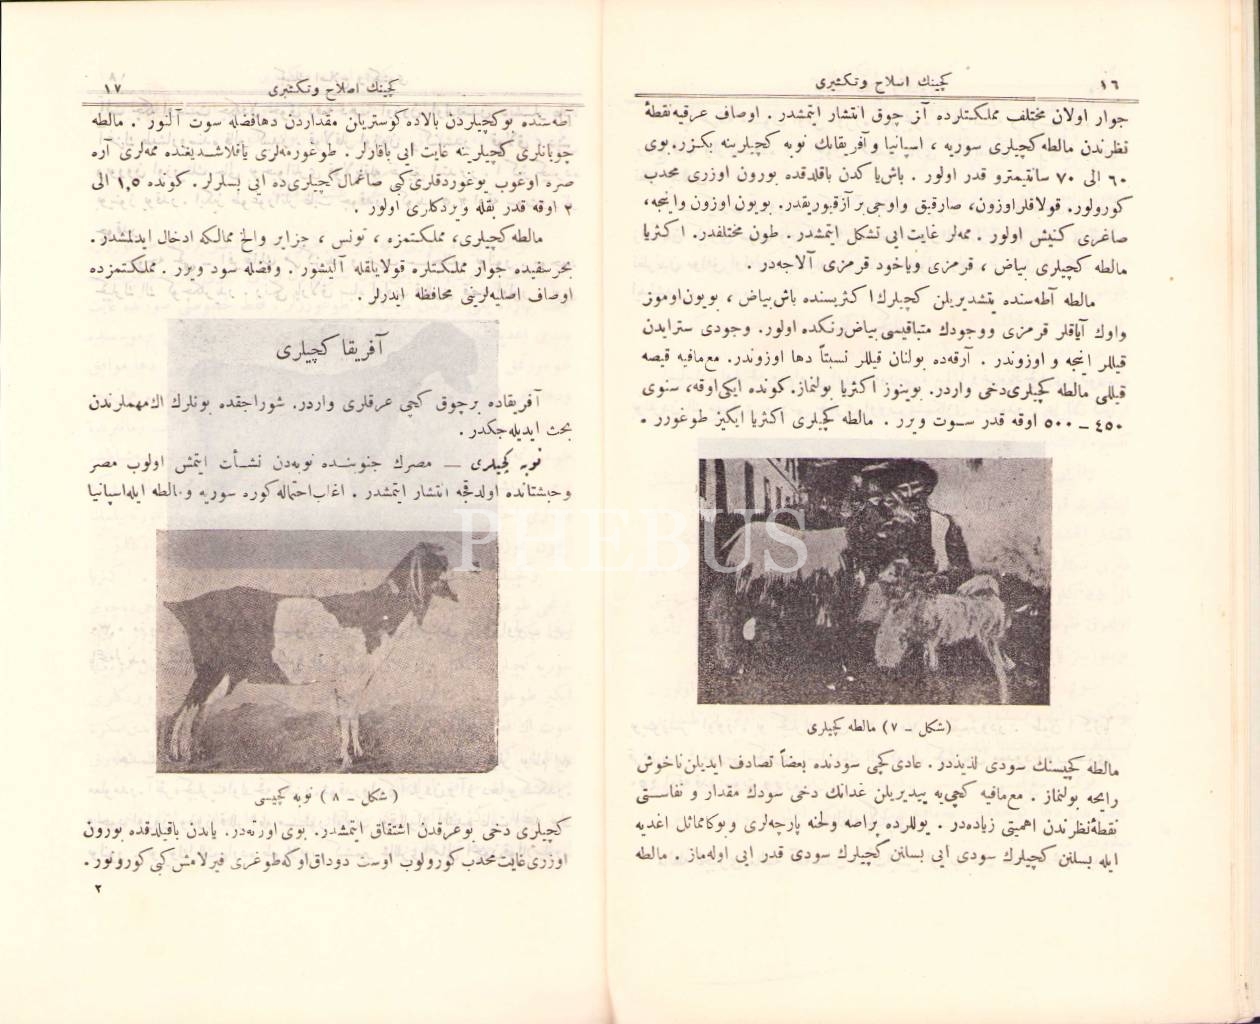 ١٦
كچينك اصلاح وتكثيرى
جوار اولان مختلف مملكتلرده آز چوق انتشار ايتمشدر . اوصاف عرقيه نقطهٔ
نظرندن مالطه كچيلرى سوريه ، اسپانيا و آفريقانك نوبه كچيلرينه بكزر. بوى
٦٠ الى ٧٠ سانتيمترو قدر اولور . باش يا كدن باقلدقده بورون اوزرى محدب
كورولور. قولاقلر اوزون، صارقيق و اوجى بر آز قيوريقدر. بويون اوزون و اينجه،
صاغرى كنيش اولور . ممه لر غايت ايى تشكل ايتمشدر . طون مختلفدر. اكثريا
مالطه كچيلرى بياض ، قرمزى وياخود قرمزى آلاجه در .
مالطه آطه سنده يتشديريلن كچيلرك اكثريسنده باش بياض ، بويون اوموز
واوك آياقلر قرمزى ووجودك متباقيسى بياض رنكده اولور. وجودى ستر ايدن
قيللر اينجه و اوزوندر . آرقه ده بولنان قيللر نسبتاً دها اوزوندر. مع مافيه قيصه
قيللى مالطه كچيلرى دخى واردر. بوينوز اكثريا بولنماز. كونده ايكى اوقه، سنوى
٤٥٠ ــ ٥٠٠ اوقه قدر سوت ويرر . مالطه كچيلرى اكثريا ايكيز طوغورر .
(شكل ــ ٧) مالطه كچيلرى
مالطه كچيسنك سودى لذيذدر . عادى كچى سودنده بعضاً تصادف ايديلن ناخوش
رايحه بولنماز . مع مافيه كچى يه ييديريلن غدانك دخى سودك مقدار و نفاستى
نقطهٔ نظرندن اهميتى زياده در . يوللرده پراصه ولحنه پارچه لرى و بوكا مماثل اغديه
ايله بسلنن كچيلرك سودى ايى بسلنن كچيلرك سودى قدر ايى اوله ماز . مالطه
١٧
كچينك اصلاح وتكثيرى
آطه سنده بو كچيلردن بالاده كوستريلن مقداردن دها فضله سوت آلنور . مالطه
چوبانلرى كچيلرينه غايت ايى باقارلر . طوغورمه لرى ياقلاشديغنده ممه لرى آره
صره اوغوب يوغوردقلرى كبى صاغمال كچيلرى ده ايى بسلرلر . كونده ١,٥ الى
٢ اوقه قدر بقله ويردكلرى اولور .
مالطه كچيلرى، مملكتمزه ، تونس ، جزاير والخ ممالكه ادخال ايدلمشدر .
بحر سفيده جوار مملكتلره قولايلقله آليشور . وفضله سود ويرر . مملكتمزده
اوصاف اصليه لرينى محافظه ايدرلر .
آفريقا كچيلرى
آفريقاده بر چوق كچى عرقلرى واردر. شوراجقده بونلرك اك مهملرندن
بحث ايديله جكدر .
نوبه كچيلرى ــ مصرك جنوبنده نوبه دن نشأت ايتمش اولوب مصر
وحبشتانده اولدقجه انتشار ايتمشدر . اغلب احتماله كوره سوريه و مالطه ايله اسپانيا
PHEBUS
( شكل ــ ٨ ) نوبه كچيسى
كچيلرى دخى بو عرقدن اشتقاق ايتمشدر. بوى اورته در. ياندن باقيلدقده بورون
اوزرى غايت محدب كورولوب اوست دوداق اوكه طوغرى فيرلامش كبى كورونور .
٢